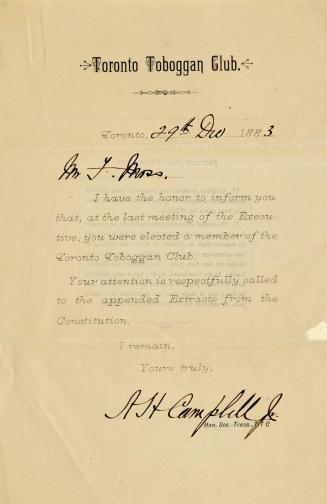 Toronto Toboggan Club.
Toronto, 29th Dec 1883.
Mr T. Moss.
I have the honor to inform you
that, at the last meeting of the Execu-
tive, you were elected a member of the
Toronto Toboggan Club.
Your attention is respectfully called
to the appended Extracts from the
Constitution.
I remain,
Yours truly,
A H Campbell Jr.
Hon. Sec.-Treas., T T C